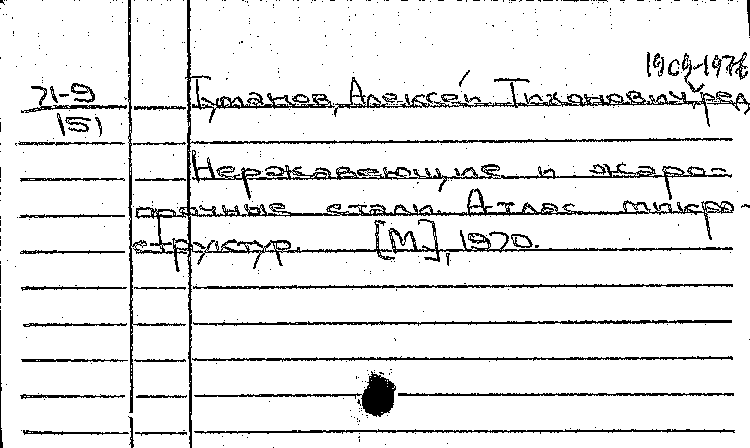 1909-1978
71-9
151
Туманов, Алексей Тихонович, ред.
Нержавеющие и жаро-
прочные стали. Атлас микро-
структур. [М.], 1970.